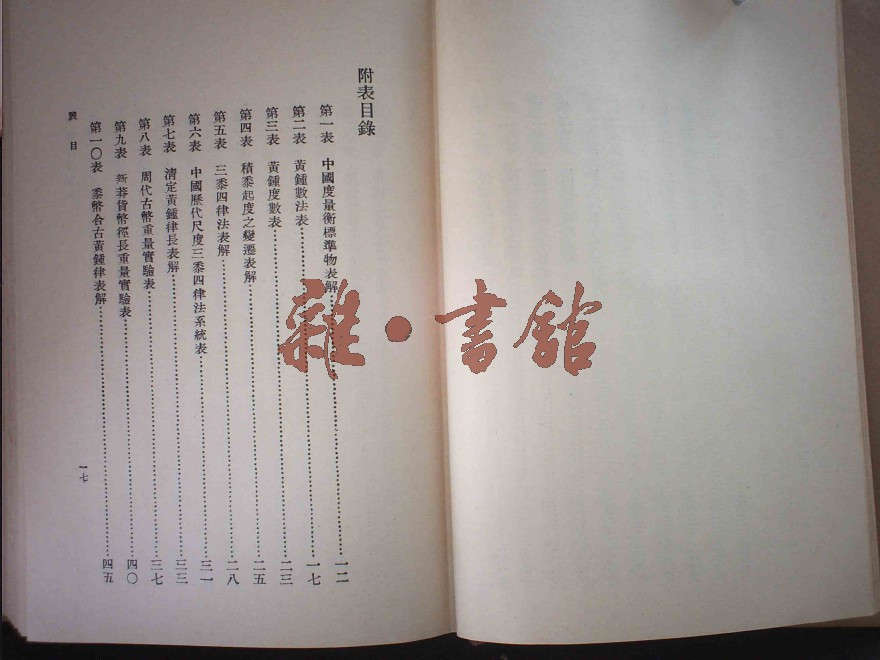 附表目錄
第一表　中國度量衡標準物表解……一二
第二表　黃鍾數法表……一七
第三表　黃鍾度數表……二三
第四表　積黍起度之變遷表解……二五
第五表　三黍四律法表解……二八
第六表　中國歷代尺度三黍四律法系統表……三一
第七表　清定黃鍾律長表解……三三
第八表　周代古幣重量實驗表……三七
第九表　新莽貨幣徑長重量實驗表……四〇
第一〇表　黍幣合古黃鍾律表解……四五
表目
一七
雜·書舘